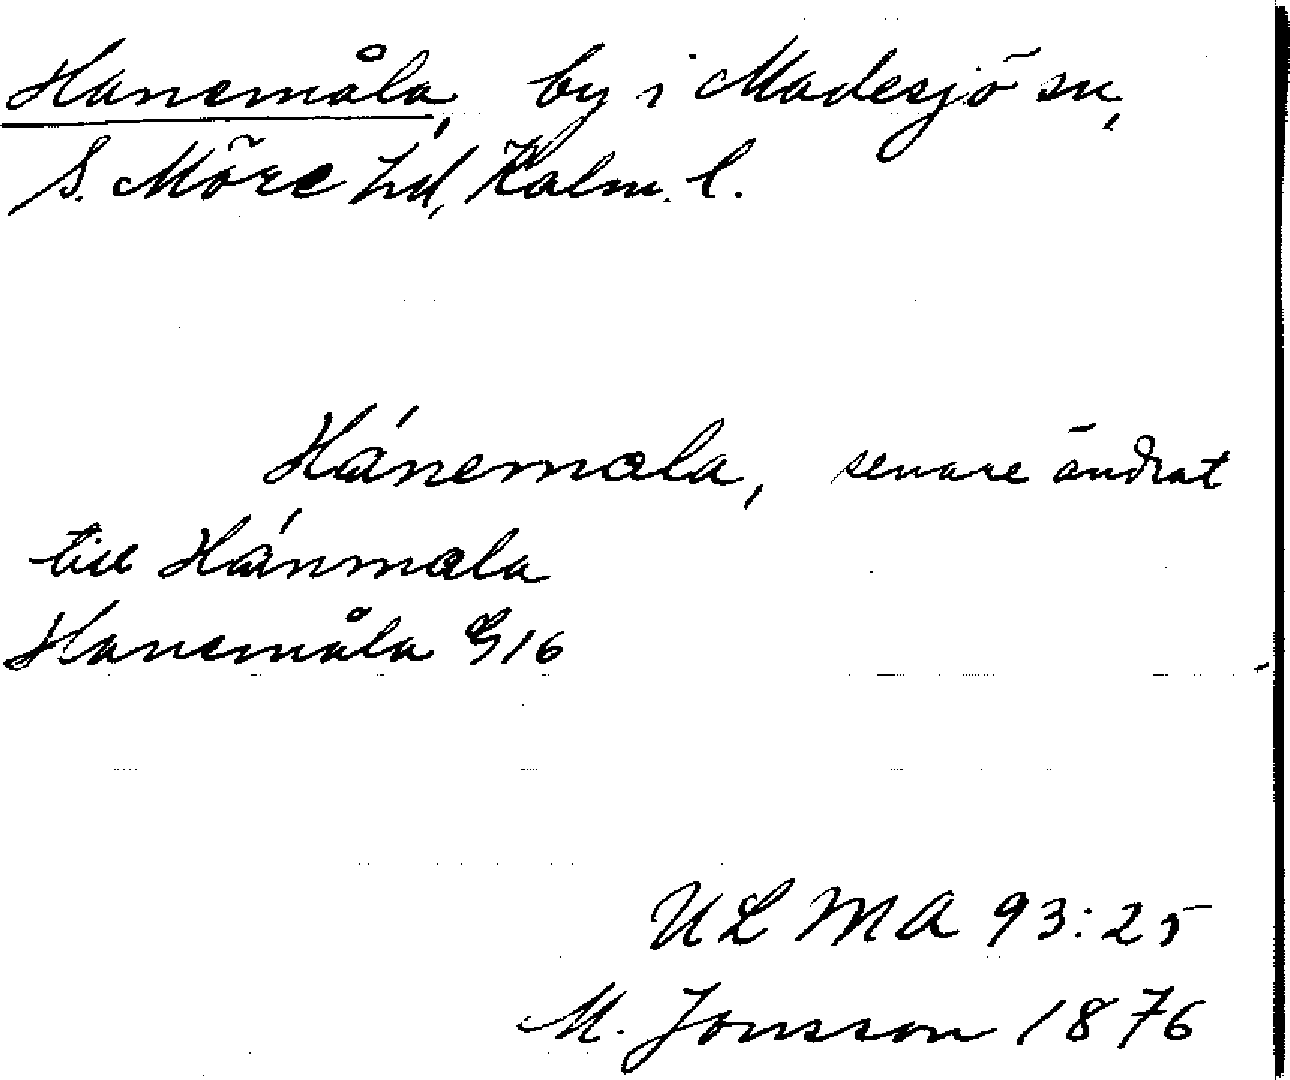 Hanemåla, by i Madesjö sn,
S. Möre hd, Kalm. l.
Hánemala, senare ändrat
till Hánmala
Hanemåla G16
ULMA 93:25
M. Jonsson 1876